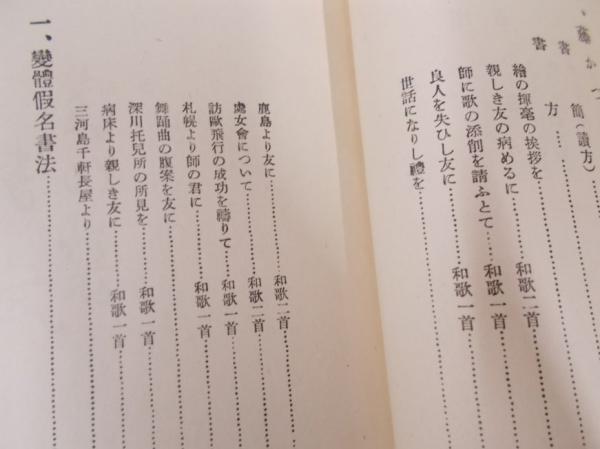 藤 か つ
書 簡（讀方）
書 方……
繪の揮毫の挨拶を
親しき友の病めるに……和歌二首……
師に歌の添削を請ふとて……和歌一首……
良人を失ひし友に……和歌一首……
世話になりし禮を……
鹿島より友に……和歌二首……
處女會について……和歌二首……
訪歐飛行の成功を禱りて……和歌一首……
札幌より師の君に……和歌一首……
舞踊曲の腹案を友に……
深川托兒所の所見を……和歌一首……
病床より親しき友に……和歌一首……
三河島千軒長屋より……
一、變體假名書法……